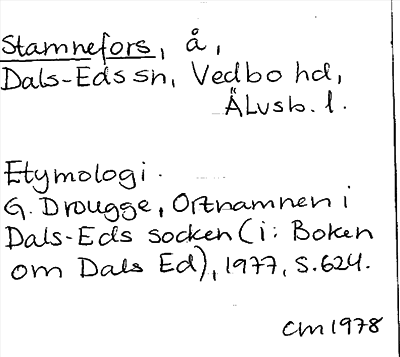 Stamnefors, å,
Dals-Eds sn, Vedbo hd,
Älvsb. l.
Etymologi.
G. Drougge, Ortnamnen i
Dals-Eds socken (i: Boken
om Dals Ed), 1977, s. 624.
CM 1978